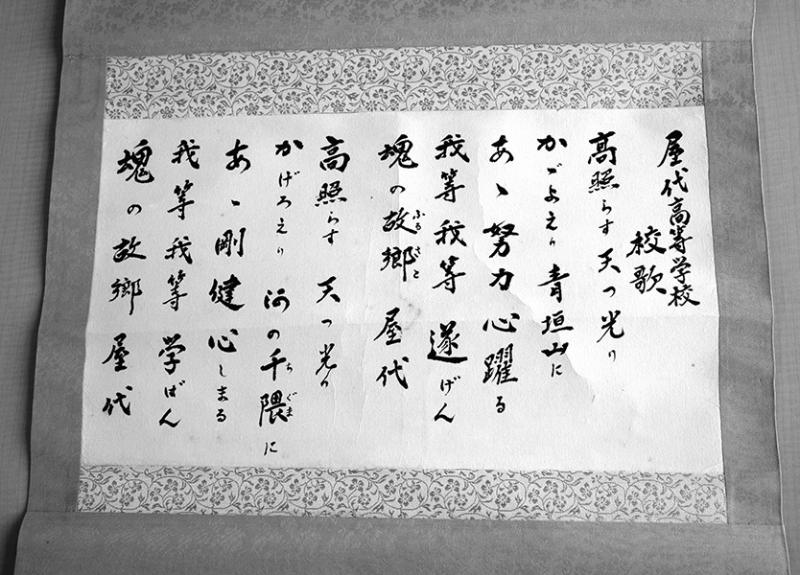 屋代高等学校
校歌
高照らす 天つ光り
かゞよえり 青垣山に
あゝ努力 心躍る
我等我等 遂げん
魂の故郷 屋代
ふるさと
高照らす 天つ光り
かげろえり 河の千隈に
ちぐま
あゝ剛健 心しまる
我等我等 学ばん
魂の故郷 屋代